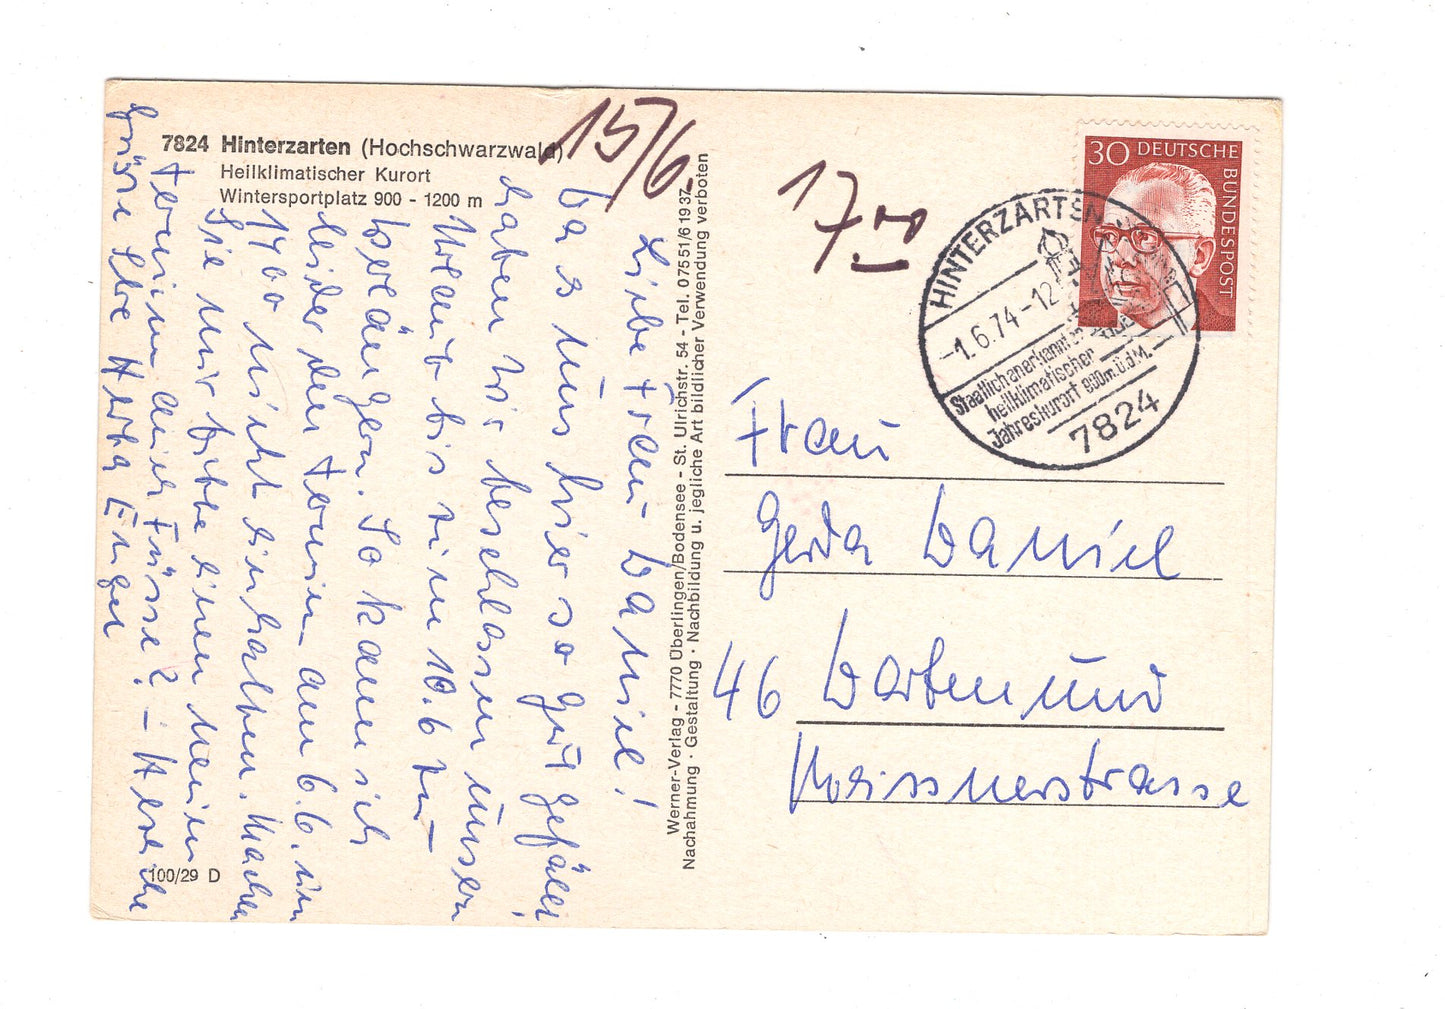 7824 Hinterzarten (Hochschwarzwald)
Heilklimatischer Kurort
Wintersportplatz 900 - 1200 m
15/6.
17.00
Liebe Frau Daniel!
Da es uns hier so gut gefällt
haben wir beschlossen unseren
Urlaub bis zum 10.6 zu
verlängern. So kann ich
leider den Termin am 6.6. um
14 00 nicht einhalten. Machen
Sie mir bitte einen neuen
Termin auch Füsse? - Herzliche
Grüsse Ihre Herta Enger
100/29 D
Werner-Verlag - 7770 Überlingen/Bodensee - St. Ulrichstr. 54 - Tel. 07551/61937
Nachahmung · Gestaltung · Nachbildung u. jegliche Art bildlicher Verwendung verboten
30 DEUTSCHE
BUNDESPOST
HINTERZARTEN
-1.6.74-12
Staatlich anerkannter
heilklimatischer
Jahreskurort 900m.ü.d.M.
7824
Frau
Gerda Daniel
46 Dortmund
Meissnerstrasse